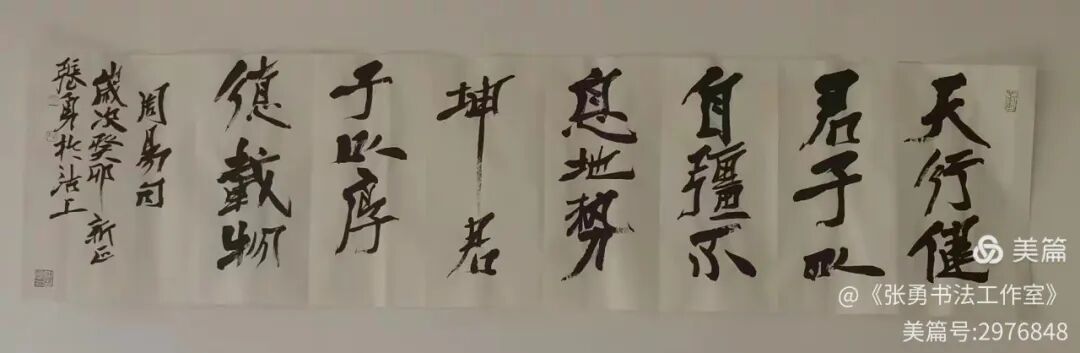 天行健
君子以
自彊不
息地勢
坤君
子以厚
德載物
周易句
歲次癸卯新正
張勇於沽上
美篇
@《张勇书法工作室》
美篇号:2976848